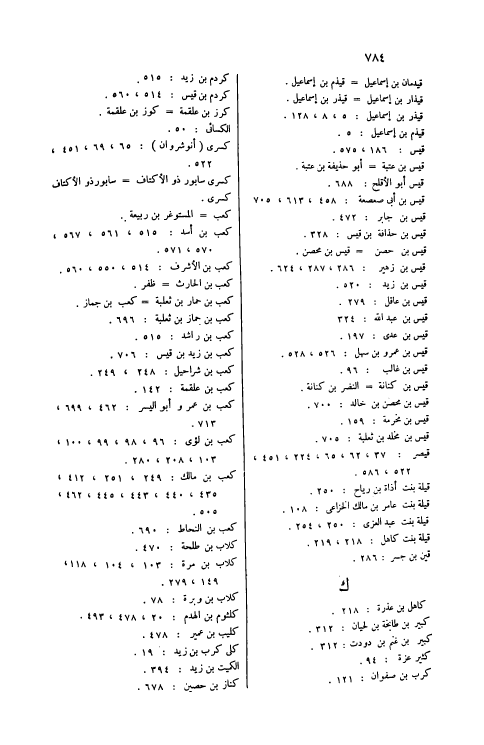 ٧٨٤
قيدمان بن إسماعيل = قيذم بن إسماعيل .
قيذار بن إسماعيل = قيذر بن إسماعيل .
قيذر بن إسماعيل : ٥ ، ٨ ، ١٢٨ .
قيذم بن إسماعيل : ٥ .
قيس : ١٨٦ ، ٥٧٥ .
قيس بن عتبة = أبو حذيفة بن عتبة .
قيس أبو الأقلح : ٦٨٨ .
قيس بن أبى صعصعة : ٤٥٨ ، ٦١٣ ، ٧٠٥
قيس بن جابر : ٤٧٢ .
قيس بن حذافة بن قيس : ٣٢٨ .
قيس بن حصن = قيس بن محصن .
قيس بن زهير : ٢٨٦ ، ٢٨٧ ، ٦٢٤ .
قيس بن زيد : ٥٢٠ .
قيس بن عاقل : ٢٧٩ .
قيس بن عبد الله : ٣٢٤
قيس بن عدى : ١٩٧ .
قيس بن عمرو بن سهل : ٥٢٦ ، ٥٢٨ .
قيس بن غالب : ٩٦ .
قيس بن كنانة = النضر بن كنانة .
قيس بن محصن بن خالد : ٧٠٠ .
قيس بن مخرمة : ١٥٩ .
قيس بن مخلد بن ثعلبة : ٧٠٥ .
قيصر : ٣٧ ، ٦٢ ، ٦٥ ، ٢٢٤ ، ٤٥١ ،
٥٢٢ ، ٥٨٦ .
قيلة بنت أذاة بن رياح : ٢٥٠ .
قيلة بنت عامر بن مالك الخزاعى : ١٠٨ .
قيلة بنت عبد العزى : ٢٥٠ ، ٢٥٤ .
قيلة بنت كاهل : ٢١٨ ، ٢١٩ .
قين بن جسر : ٢٨٦ .
ك
كاهل بن عذرة : ٢١٨ .
كبير بن طابخة بن لحيان : ٣١٢ .
كبير بن غنم بن دودت : ٣١٢ .
كثير عزة : ٩٤ .
كرب بن صفوان : ١٢١ .
كردم بن زيد : ٥١٥ .
كردم بن قيس : ٥١٤ ، ٥٦٠ .
كرز بن علقمة = كوز بن علقمة .
الكسائى : ٥٠ .
كسرى ( أنوشروان ) : ٦٥ ، ٦٩ ، ٤٥١ ،
٥٢٢ .
كسرى سابور ذو الأكتاف = سابورذو الأكتاف
كسرى .
كعب = المستوغر بن ربيعة .
كعب بن أسد : ٥١٥ ، ٥٦١ ، ٥٦٧ ،
٥٧٠ ، ٥٧١ .
كعب بن الأشرف : ٥١٤ ، ٥٥٠ ، ٥٦٠ .
كعب بن الحارث = ظفر .
كعب بن حمار بن ثعلبة = كعب بن جماز .
كعب بن جماز بن ثعلبة : ٦٩٦ .
كعب بن راشد : ٥١٥ .
كعب بن زيد بن قيس : ٧٠٦ .
كعب بن شراحيل : ٢٤٨ ، ٢٤٩ .
كعب بن علقمة : ١٤٢ .
كعب بن عمر و أبو اليسر : ٤٦٢ ، ٦٩٩ ،
٧١٣ .
كعب بن لؤى : ٩٦ ، ٩٨ ، ٩٩ ، ١٠٠ ،
١٠٣ ، ٢٠٨ ، ٢٨٠ .
كعب بن مالك : ٢٤٩ ، ٢٥١ ، ٤١٢ ،
٤٣٥ ، ٤٤٠ ، ٤٤٣ ، ٤٤٥ ، ٤٦٢ ،
٥٠٥ .
كعب بن النحاط : ٦٩٠ .
كلاب بن طلحة : ٤٧٠ .
كلاب بن مرة : ١٠٣ ، ١٠٤ ، ١١٨ ،
١٤٩ ، ٢٧٩ .
كلاب بن وبرة : ٧٨ .
كلثوم بن الهدم : ٢٠ ، ٤٧٨ ، ٤٩٣ .
كليب بن عمير : ٤٧٨ .
كلى كرب بن زيد : ١٩ .
الكميت بن زيد : ٣٩٤ .
كناز بن حصين : ٦٧٨ .